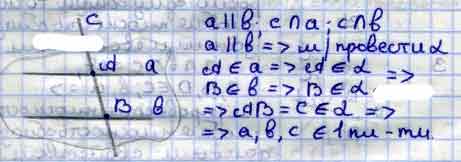 c
A a
B b
a||b; c∩a; c∩b
a||b => м/провести α
A∈a => A∈α =>
B∈b => B∈α
=> AB=c∈α =>
=> a, b, c ∈ 1 пл-ти.